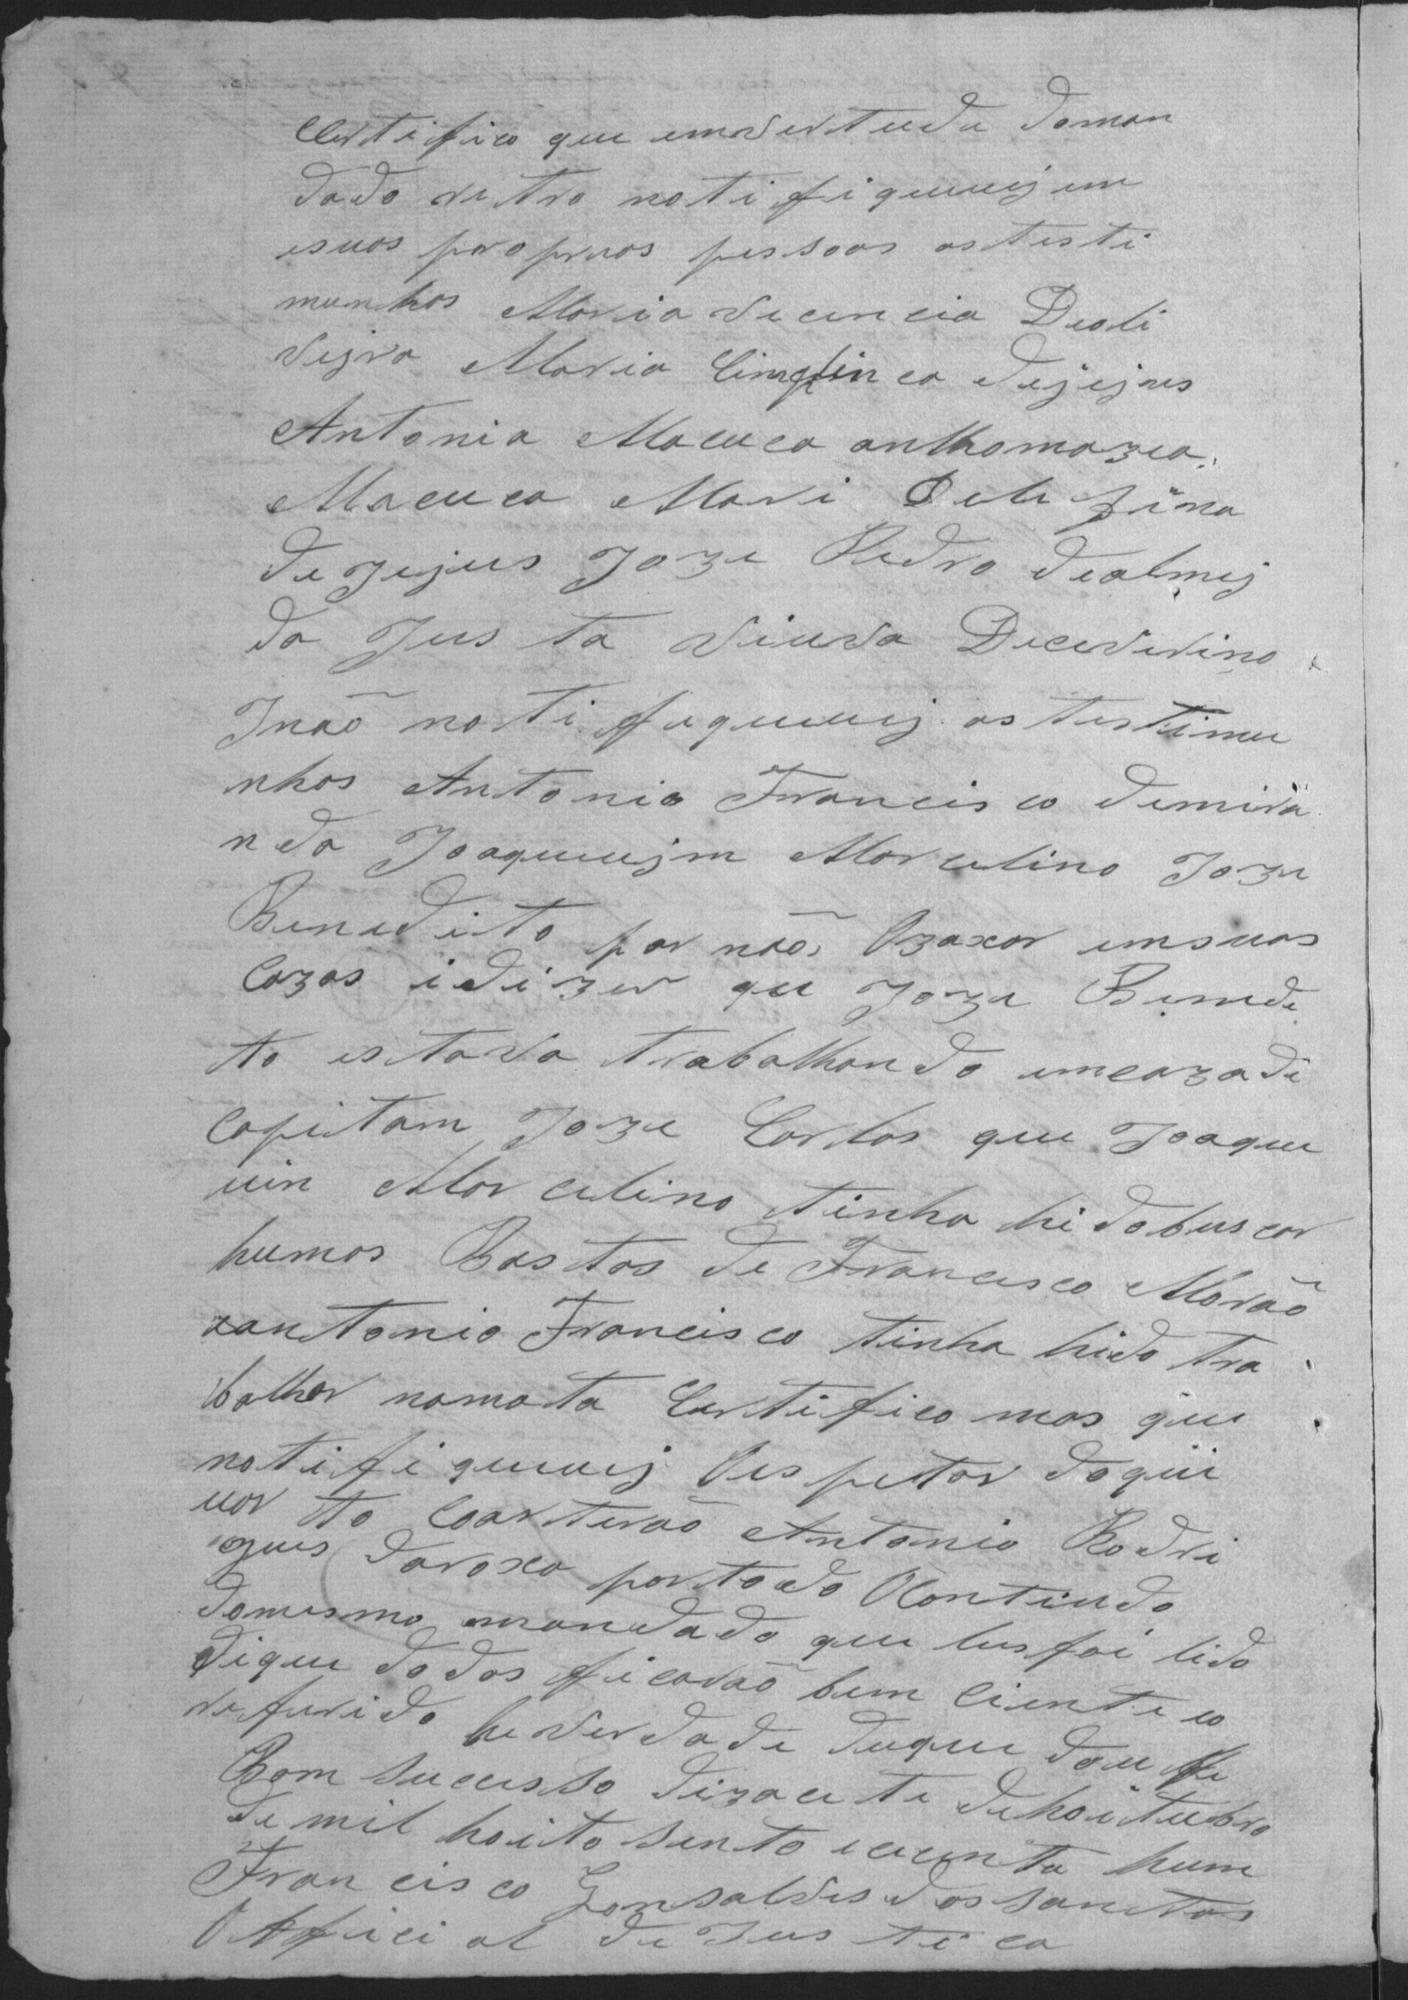 Certifico que emvertude doman
dado retro notifiqueuejem
esuas propruas pessoas astesti
munhas Maria vicencia Deoli
vejra Maria dejejus
Antonia Macuca anthomazia
Macuca Mari Delfina
de jejus Joze Pedro dealmej
da Justa viuva Deceverino
Inaõ notifiqueuej as testimu
nhas Antonio Francisco demira
nda Joaqueujm Marcelino Joze
Benedito por naõ Ozaxar emsuas
Cazas idizer que Joze Benedi
to estava trabalhando emcazade
Capitam Joze Carlos que Joaque
uin Marcelino tinha hidobuscar
humas Bastas de Francisco Moraõ
eantonio Francisco tinha hido tra
balhar namata Certifico mas que
notifiqueuej Oespetor doqui
uorto Coarteraõ Antonio Rodri
gues daroxa portodo Ocontiudo
domesmo mandado que lhesfoi lido
dique dodos ficaraõ bem Ciente eo
referido he verdade deque dou fe
Bom sucesso dizacete dehoitubro
de mil hoitosento ecuenta hum
Francisco Gonsalves dos sanctos
Official de Justica